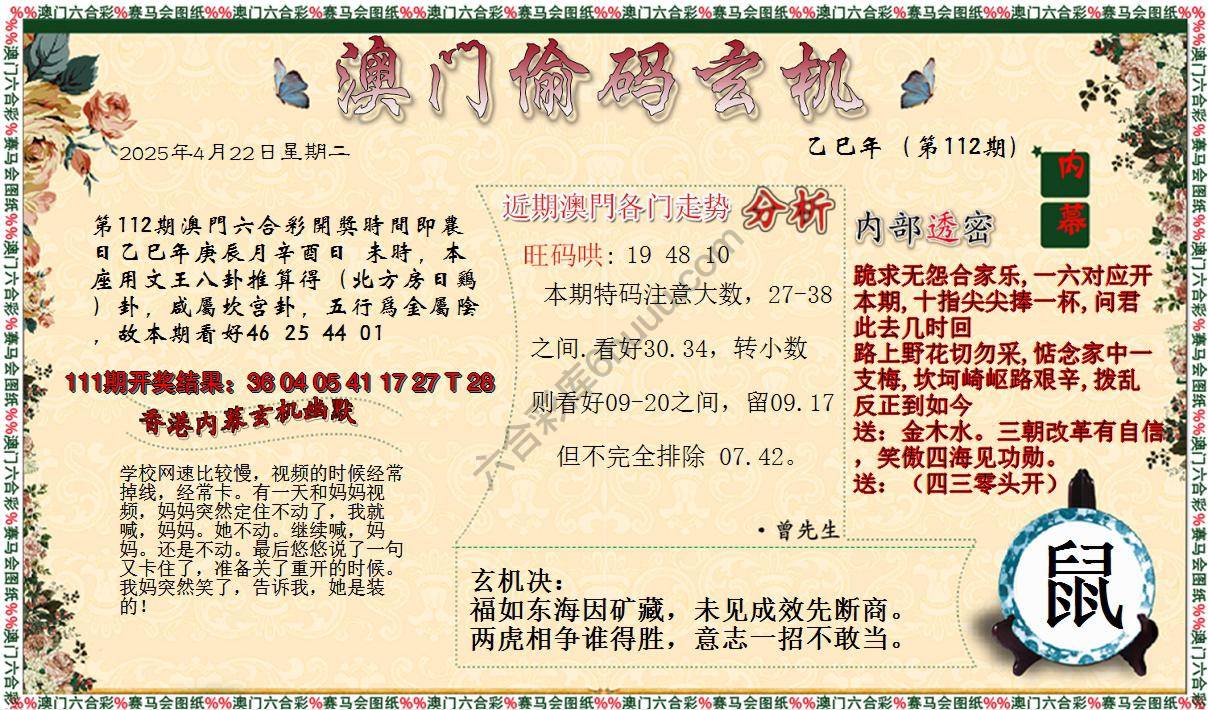 %%澳门六合彩%赛马会图纸%%澳门六合彩%赛马会图纸%%澳门六合彩%赛马会图纸%%澳门六合彩%赛马会图纸%%澳门六合彩%赛马会图纸%%澳门六合彩%赛马会图纸%%
澳门偷码玄机
2025年4月22日星期二
乙巳年（第112期）
内幕
第112期澳門六合彩開獎時間即農
日乙巳年庚辰月辛酉日 未時，本
座用文王八卦推算得（北方房日鷄
）卦，咸屬坎宫卦，五行爲金屬陰
，故本期看好46 25 44 01
111期开奖结果：36 04 05 41 17 27 T 28
香港内幕玄机幽默
学校网速比较慢，视频的时候经常
掉线，经常卡。有一天和妈妈视
频，妈妈突然定住不动了，我就
喊，妈妈。她不动。继续喊，妈
妈。还是不动。最后悠悠说了一句
又卡住了，准备关了重开的时候。
我妈突然笑了，告诉我，她是装
的！
近期澳門各门走势 分析
旺码哄: 19 48 10
本期特码注意大数，27-38
之间.看好30.34，转小数
则看好09-20之间，留09.17
但不完全排除 07.42。
·曾先生
内部透密
跪求无怨合家乐,一六对应开
本期,十指尖尖捧一杯,问君
此去几时回
路上野花切勿采,惦念家中一
支梅,坎坷崎岖路艰辛,拨乱
反正到如今
送：金木水。三朝改革有自信
，笑傲四海见功勋。
送：（四三零头开）
玄机决：
福如东海因矿藏，未见成效先断商。
两虎相争谁得胜，意志一招不敢当。
鼠
%%澳门六合彩%赛马会图纸%%澳门六合彩%赛马会图纸%%澳门六合彩%赛马会图纸%%澳门六合彩%赛马会图纸%%澳门六合彩%赛马会图纸%%澳门六合彩%赛马会图纸%%